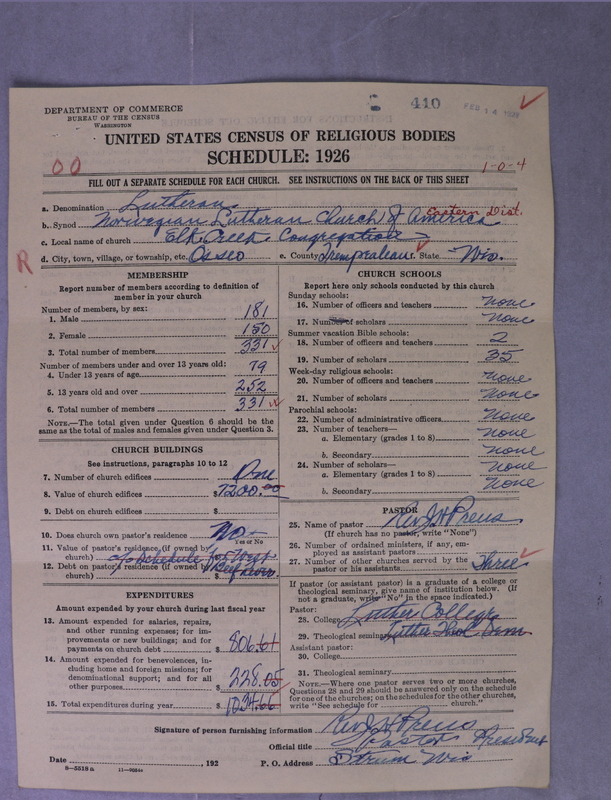 DEPARTMENT OF COMMERCE
BUREAU OF THE CENSUS
WASHINGTON
410
FEB 14
UNITED STATES CENSUS OF RELIGIOUS BODIES
SCHEDULE: 1926
00
1-0-4
FILL OUT A SEPARATE SCHEDULE FOR EACH CHURCH. SEE INSTRUCTIONS ON THE BACK OF THIS SHEET
a. Denomination Lutheran
b. Synod Norwegian Lutheran Church of America Eastern Dist.
c. Local name of church Elk Creek Congregation
R
d. City, town, village, or township, etc. Osseo e. County Trempealeau f. State Wis.
MEMBERSHIP
Report number of members according to definition of member in your church
Number of members, by sex:
1. Male 181
2. Female 150
3. Total number of members 331
Number of members under and over 13 years old:
4. Under 13 years of age 79
5. 13 years old and over 252
6. Total number of members 331
NOTE.—The total given under Question 6 should be
same as the total of males and females given under Question 3.
CHURCH BUILDINGS
See instructions, paragraphs 10 to 12
7. Number of church edifices One
8. Value of church edifices $7200.00
9. Debt on church edifices $
10. Does church own pastor's residence? No
Yes or No
11. Value of pastor's residence (if owned by
church) See Schedule for West
12. Debt on pastor's residence (if owned by
church) Beef River
EXPENDITURES
Amount expended by your church during last fiscal year
13. Amount expended for salaries, repairs,
and other running expenses; for im-
provements or new buildings; and for
payments on church debt $806.61
14. Amount expended for benevolences, in-
cluding home and foreign missions; for
denominational support; and for all
other purposes $228.05
15. Total expenditures during year $1034.66
CHURCH SCHOOLS
Report here only schools conducted by this church
Sunday schools:
16. Number of officers and teachers none
17. Number of scholars none
Summer vacation Bible schools:
18. Number of officers and teachers 2
19. Number of scholars 35
Week-day religious schools:
20. Number of officers and teachers none
21. Number of scholars none
Parochial schools:
22. Number of administrative officers none
23. Number of teachers—
a. Elementary (grades 1 to 8) none
b. Secondary none
24. Number of scholars—
a. Elementary (grades 1 to 8) none
b. Secondary none
PASTOR
25. Name of pastor Rev J H Preus
(If church has no pastor, write "None")
26. Number of ordained ministers, if any, em-
ployed as assistant pastors
27. Number of other churches served by the
pastor or his assistants Three
If pastor (or assistant pastor) is a graduate of a college or
theological seminary, give name of institution below. (If
not a graduate, write "No" in the space indicated.)
Pastor:
28. College Luther College
29. Theological seminary Luther Theol Sem
Assistant pastor:
30. College
31. Theological seminary
NOTE.—Where one pastor serves two or more churches,
Questions 28 and 29 should be answered only on the schedule
for one of the churches; on the schedules for the other churches,
write "See schedule for church."
Signature of person furnishing information Rev J H Preus
Official title Pastor President
Date , 192 P. O. Address Strum Wis
8-5518 a 11-9024a